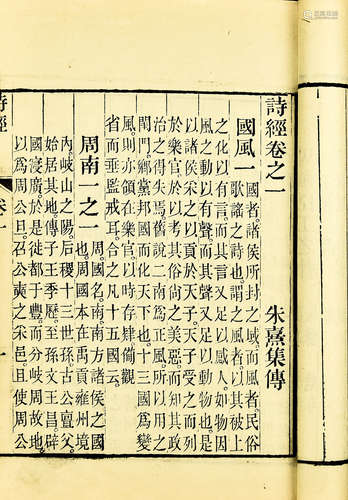 詩經卷之一
朱熹集傳
國風一
國者諸侯所封之域而風者民俗
歌謠之詩也謂之風者以其被上
之化以有言而其言又足以感人如物因
風之動以有聲而其聲又足以動物也是
以諸侯采之以貢於天子天子受之而列
於樂官於以考其俗尚之美惡而知其政
治之得失焉舊說二南為正風所以用之
閨門鄉黨邦國而化天下也十三國為變
風則亦領在樂官以時存肄備觀
省而垂監戒耳合之凡十五國云
周南一之一
周國名南南方諸侯之國
也周國本在禹貢雍州境
內岐山之陽后稷十三世孫古公亶父
始居其地傳子王季歷至孫文王昌辟
國寖廣於是徙都于豐而分岐周故地
以為周公旦召公奭之采邑且使周公
詩經
卷一
一